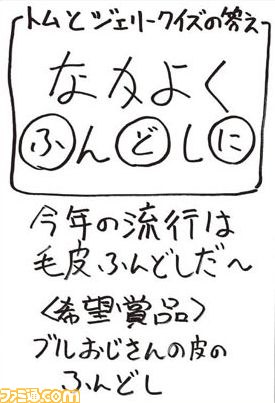 トムとジェリークイズの答え
なかよく
ふんどしに
今年の流行は
毛皮ふんどしだ〜
<希望賞品>
ブルおじさんの皮の
ふんどし
ファミ通.com